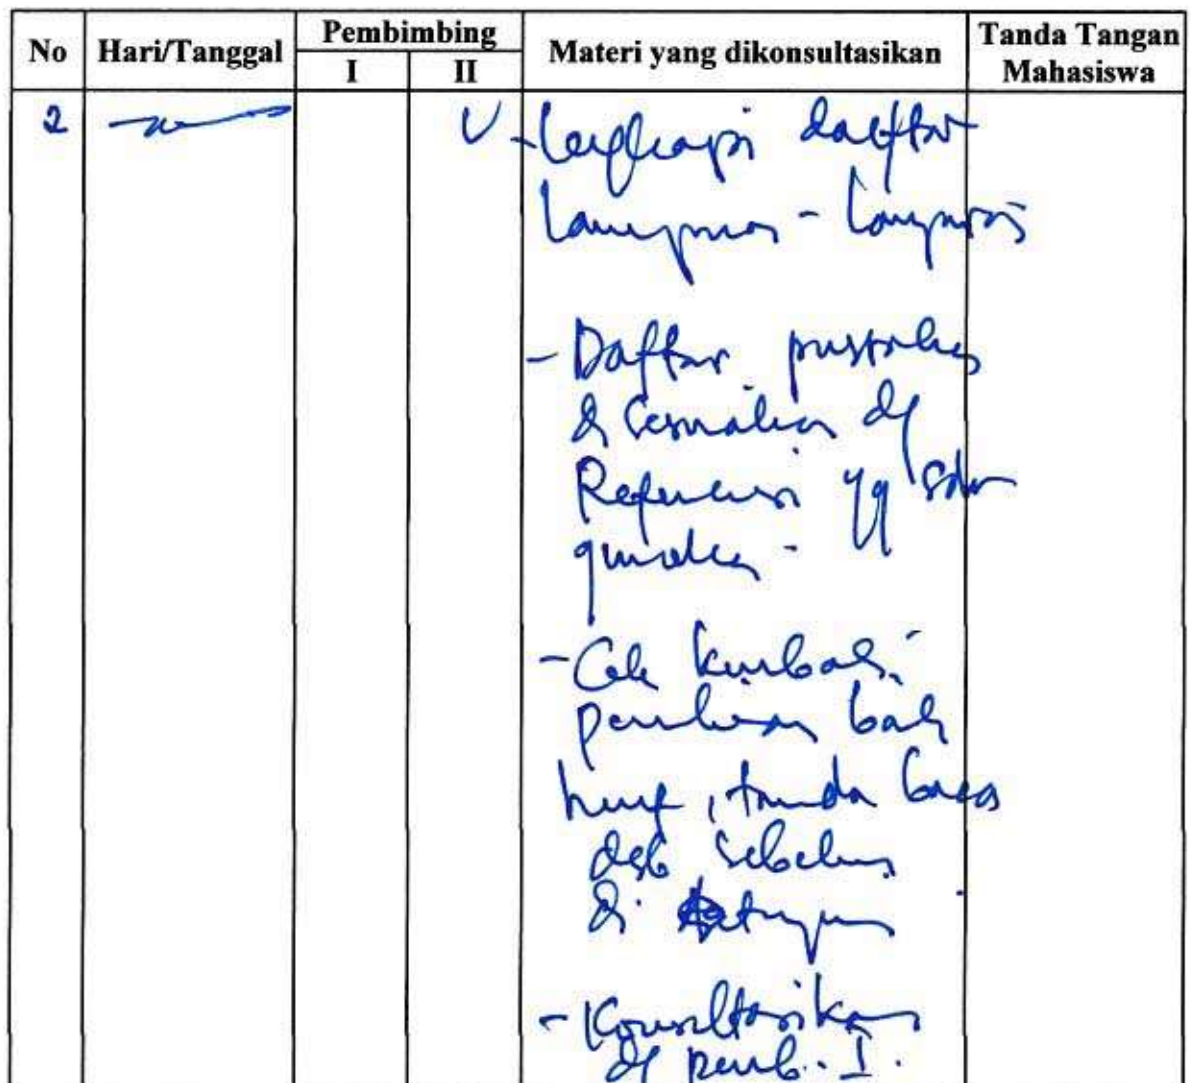 No Hari/Tanggal Pembimbing Materi yang dikonsultasikan Tanda Tangan Mahasiswa
I II
2 V - Lengkapi daftar
Lampiran - Lampiran
- Daftar pustaka
di sesuaikan dg
Referensi yg sdr
gunakan -
- Cek kembali
penulisan baik
huruf, tanda baca
dsb sebelum
di setujui
- Konsultasikan
dg pemb. I.